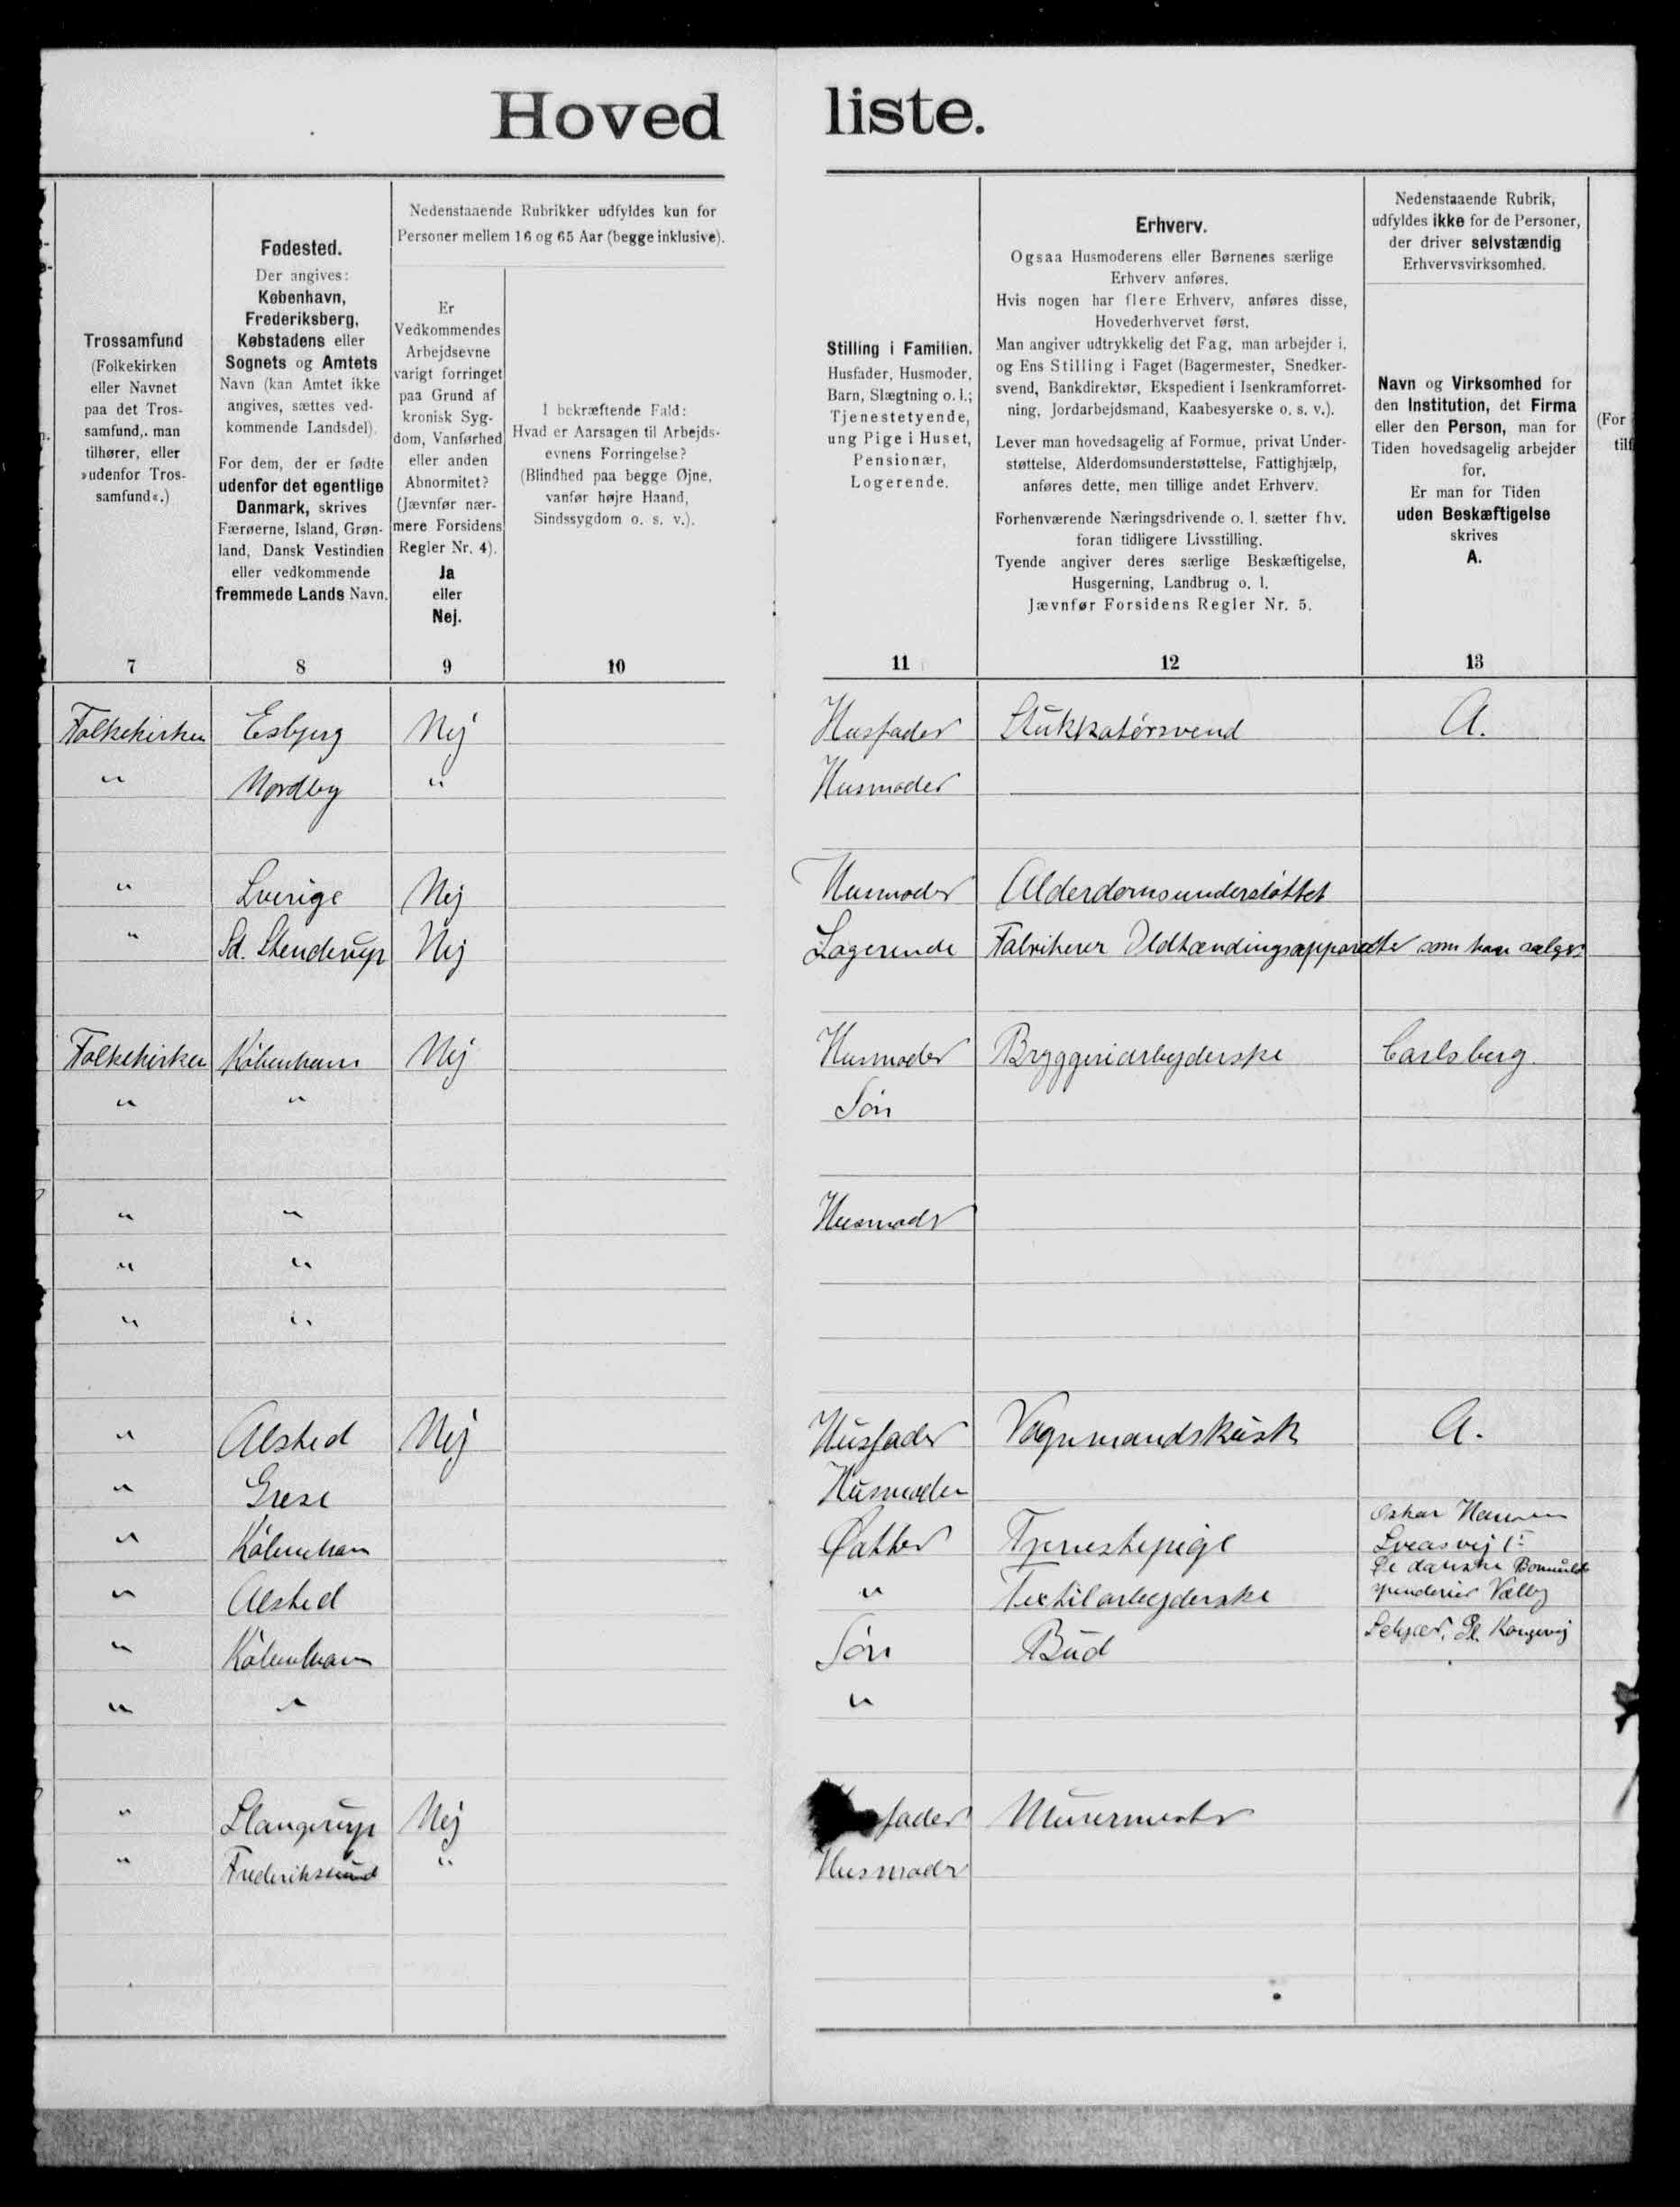 Hoved liste.
Trossamfund
(Folkekirken
eller Navnet
paa det Tros-
samfund,. man
tilhører, eller
»udenfor Tros-
samfund«.)
7
Fødested.
Der angives:
København,
Frederiksberg,
Købstadens eller
Sognets og Amtets
Navn (kan Amtet ikke
angives, sættes ved-
kommende Landsdel).
For dem, der er fødte
udenfor det egentlige
Danmark, skrives
Færøerne, Island, Grøn-
land, Dansk Vestindien
eller vedkommende
fremmede Lands Navn.
8
Nedenstaaende Rubrikker udfyldes kun for
Personer mellem 16 og 65 Aar (begge inklusive).
Er
Vedkommendes
Arbejdsevne
varigt forringet
paa Grund af
kronisk Syg-
dom, Vanførhed
eller anden
Abnormitet?
(Jævnfør nær-
mere Forsidens
Regler Nr. 4).
Ja
eller
Nej.
9
I bekræftende Fald:
Hvad er Aarsagen til Arbejds-
evnens Forringelse?
(Blindhed paa begge Øjne,
vanfør højre Haand,
Sindssygdom o. s. v.).
10
Stilling i Familien.
Husfader, Husmoder,
Barn, Slægtning o. l.;
Tjenestetyende,
ung Pige i Huset,
Pensionær,
Logerende.
11
Erhverv.
Ogsaa Husmoderens eller Børnenes særlige
Erhverv anføres.
Hvis nogen har flere Erhverv, anføres disse,
Hovederhvervet først.
Man angiver udtrykkelig det Fag, man arbejder i,
og Ens Stilling i Faget (Bagermester, Snedker-
svend, Bankdirektør, Ekspedient i Isenkramforret-
ning, Jordarbejdsmand, Kaabesyerske o. s. v.).
Lever man hovedsagelig af Formue, privat Under-
støttelse, Alderdomsunderstøttelse, Fattighjælp,
anføres dette, men tillige andet Erhverv.
Forhenværende Næringsdrivende o. l. sætter fhv.
foran tidligere Livsstilling.
Tyende angiver deres særlige Beskæftigelse,
Husgerning, Landbrug o. l.
Jævnfør Forsidens Regler Nr. 5.
12
Nedenstaaende Rubrik,
udfyldes ikke for de Personer,
der driver selvstændig
Erhvervsvirksomhed.
Navn og Virksomhed for
den Institution, det Firma
eller den Person, man for
Tiden hovedsagelig arbejder
for.
Er man for Tiden
uden Beskæftigelse
skrives
A.
13
(For
Folkekirken Esbjerg Nej Husfader Stukkatørsvend A.
" Nordby " Husmoder
" Sverige Nej Husmoder Alderdomsunderstøttet
" Sd. Stenderup Nej Logerende Fabrikerer Ildtændingsapparater som han sælger
Folkekirken København Nej Husmoder Bryggeriarbejderske Carlsberg
" " Søn
" " Husmoder
" "
" "
" Alsted Nej Husfader Vognmandskusk A.
" Grese Husmoder
" København Datter Tjenestepige Oskar Hansen
Sveasvej
" Alsted " Textilarbejderske De danske Bomulds
spinderier Valby
" København Søn Bud Gl. Kongevej
" " "
" Slangerup Nej fader Murermester
" Frederikssund " Husmoder